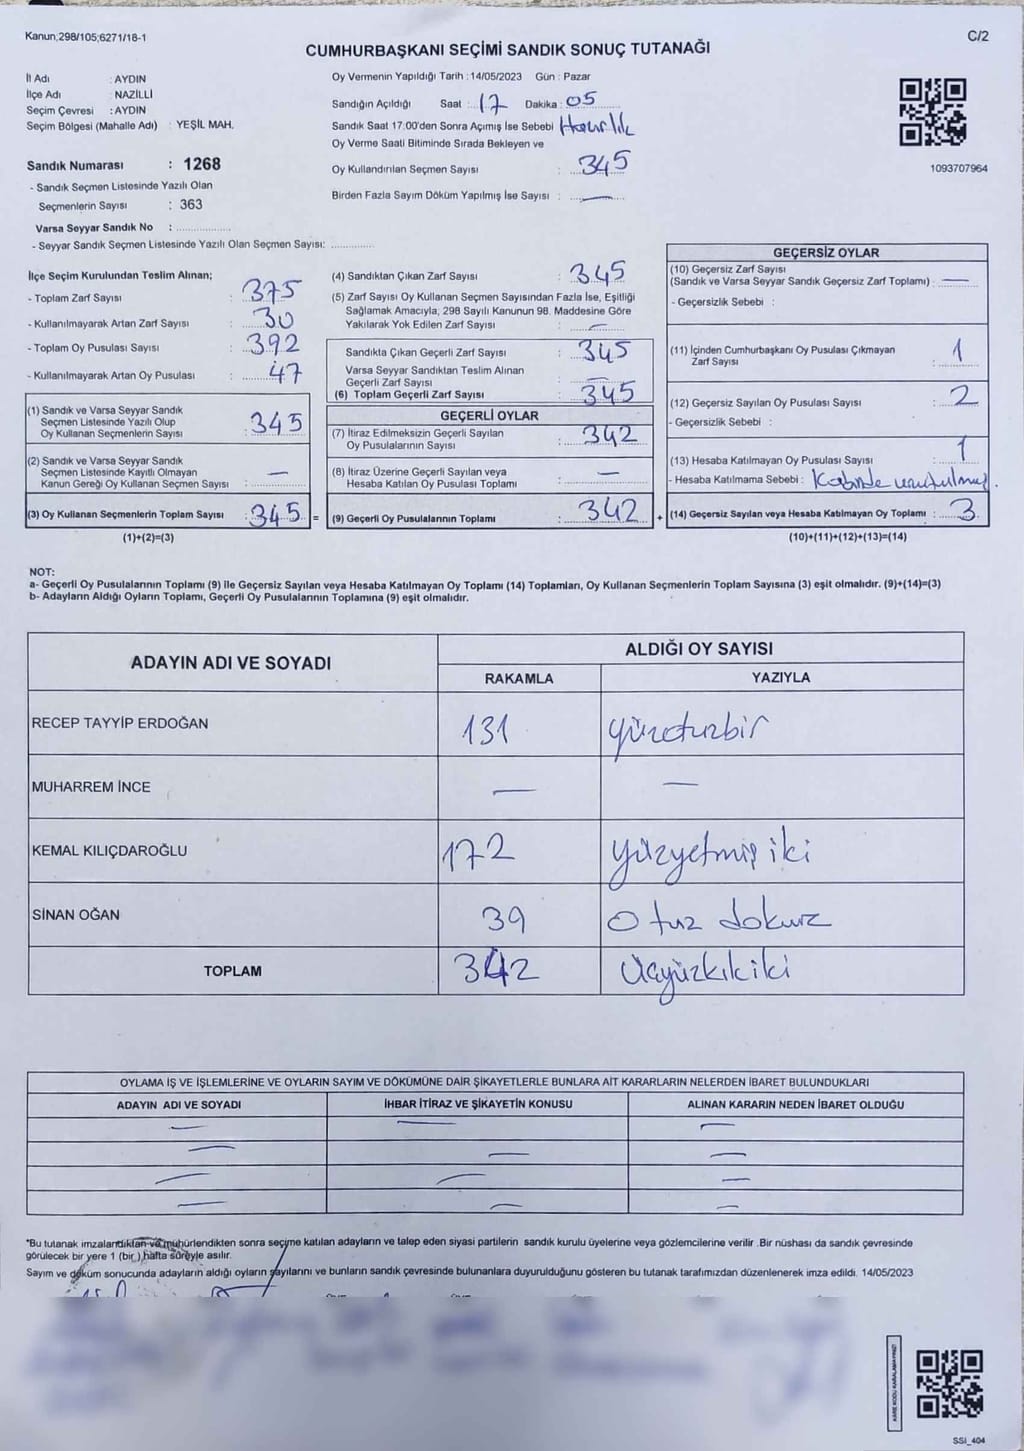 Kanun;298/105;6271/18-1
C/2
CUMHURBAŞKANI SEÇİMİ SANDIK SONUÇ TUTANAĞI
İl Adı : AYDIN
İlçe Adı : NAZİLLİ
Seçim Çevresi : AYDIN
Seçim Bölgesi (Mahalle Adı) : YEŞİL MAH.
Sandık Numarası : 1268
- Sandık Seçmen Listesinde Yazılı Olan
Seçmenlerin Sayısı : 363
Varsa Seyyar Sandık No :
- Seyyar Sandık Seçmen Listesinde Yazılı Olan Seçmen Sayısı:
Oy Vermenin Yapıldığı Tarih : 14/05/2023 Gün : Pazar
Sandığın Açıldığı Saat : 17 Dakika : 05
Sandık Saat 17:00'den Sonra Açımış İse Sebebi Hazırlık
Oy Verme Saati Bitiminde Sırada Bekleyen ve
Oy Kullandırılan Seçmen Sayısı : 345
Birden Fazla Sayım Döküm Yapılmış İse Sayısı : —
1093707964
İlçe Seçim Kurulundan Teslim Alınan;
- Toplam Zarf Sayısı : 375
- Kullanılmayarak Artan Zarf Sayısı : 30
- Toplam Oy Pusulası Sayısı : 392
- Kullanılmayarak Artan Oy Pusulası : 47
(1) Sandık ve Varsa Seyyar Sandık
Seçmen Listesinde Yazılı Olup
Oy Kullanan Seçmenlerin Sayısı : 345
(2) Sandık ve Varsa Seyyar Sandık
Seçmen Listesinde Kayıtlı Olmayan
Kanun Gereği Oy Kullanan Seçmen Sayısı : —
(3) Oy Kullanan Seçmenlerin Toplam Sayısı : 345 =
(1)+(2)=(3)
(4) Sandıktan Çıkan Zarf Sayısı : 345
(5) Zarf Sayısı Oy Kullanan Seçmen Sayısından Fazla İse, Eşitliği
Sağlamak Amacıyla; 298 Sayılı Kanunun 98. Maddesine Göre
Yakılarak Yok Edilen Zarf Sayısı : —
Sandıkta Çıkan Geçerli Zarf Sayısı : 345
Varsa Seyyar Sandıktan Teslim Alınan
Geçerli Zarf Sayısı : —
(6) Toplam Geçerli Zarf Sayısı : 345
GEÇERLİ OYLAR
(7) İtiraz Edilmeksizin Geçerli Sayılan
Oy Pusulalarının Sayısı : 342
(8) İtiraz Üzerine Geçerli Sayılan veya
Hesaba Katılan Oy Pusulası Toplamı : —
(9) Geçerli Oy Pusulalarının Toplamı : 342 +
GEÇERSİZ OYLAR
(10) Geçersiz Zarf Sayısı
(Sandık ve Varsa Seyyar Sandık Geçersiz Zarf Toplamı) : —
- Geçersizlik Sebebi :
(11) İçinden Cumhurbaşkanı Oy Pusulası Çıkmayan
Zarf Sayısı : 1
(12) Geçersiz Sayılan Oy Pusulası Sayısı : 2
- Geçersizlik Sebebi :
(13) Hesaba Katılmayan Oy Pusulası Sayısı : 1
- Hesaba Katılmama Sebebi : Kabinde unutulmuş.
(14) Geçersiz Sayılan veya Hesaba Katılmayan Oy Toplamı : 3
(10)+(11)+(12)+(13)=(14)
NOT:
a- Geçerli Oy Pusulalarının Toplamı (9) ile Geçersiz Sayılan veya Hesaba Katılmayan Oy Toplamı (14) Toplamları, Oy Kullanan Seçmenlerin Toplam Sayısına (3) eşit olmalıdır. (9)+(14)=(3)
b- Adayların Aldığı Oyların Toplamı, Geçerli Oy Pusulalarının Toplamına (9) eşit olmalıdır.
ADAYIN ADI VE SOYADI
ALDIĞI OY SAYISI
RAKAMLA YAZIYLA
RECEP TAYYİP ERDOĞAN 131 yüzotuzbir
MUHARREM İNCE — —
KEMAL KILIÇDAROĞLU 172 yüzyetmiş iki
SİNAN OĞAN 39 otuz dokuz
TOPLAM 342 Üçyüzkıkiki
OYLAMA İŞ VE İŞLEMLERİNE VE OYLARIN SAYIM VE DÖKÜMÜNE DAİR ŞİKAYETLERLE BUNLARA AİT KARARLARIN NELERDEN İBARET BULUNDUKLARI
ADAYIN ADI VE SOYADI İHBAR İTİRAZ VE ŞİKAYETİN KONUSU ALINAN KARARIN NEDEN İBARET OLDUĞU
— — —
— — —
— — —
— — —
*Bu tutanak imzalandıktan ve mühürlendikten sonra seçime katılan adayların ve talep eden siyasi partilerin sandık kurulu üyelerine veya gözlemcilerine verilir .Bir nüshası da sandık çevresinde
görülecek bir yere 1 (bir ) hafta süreyle asılır.
Sayım ve döküm sonucunda adayların aldığı oyların sayılarını ve bunların sandık çevresinde bulunanlara duyurulduğunu gösteren bu tutanak tarafımızdan düzenlenerek imza edildi. 14/05/2023
KARE KODU KARALAMAYINIZ!
SSI_404